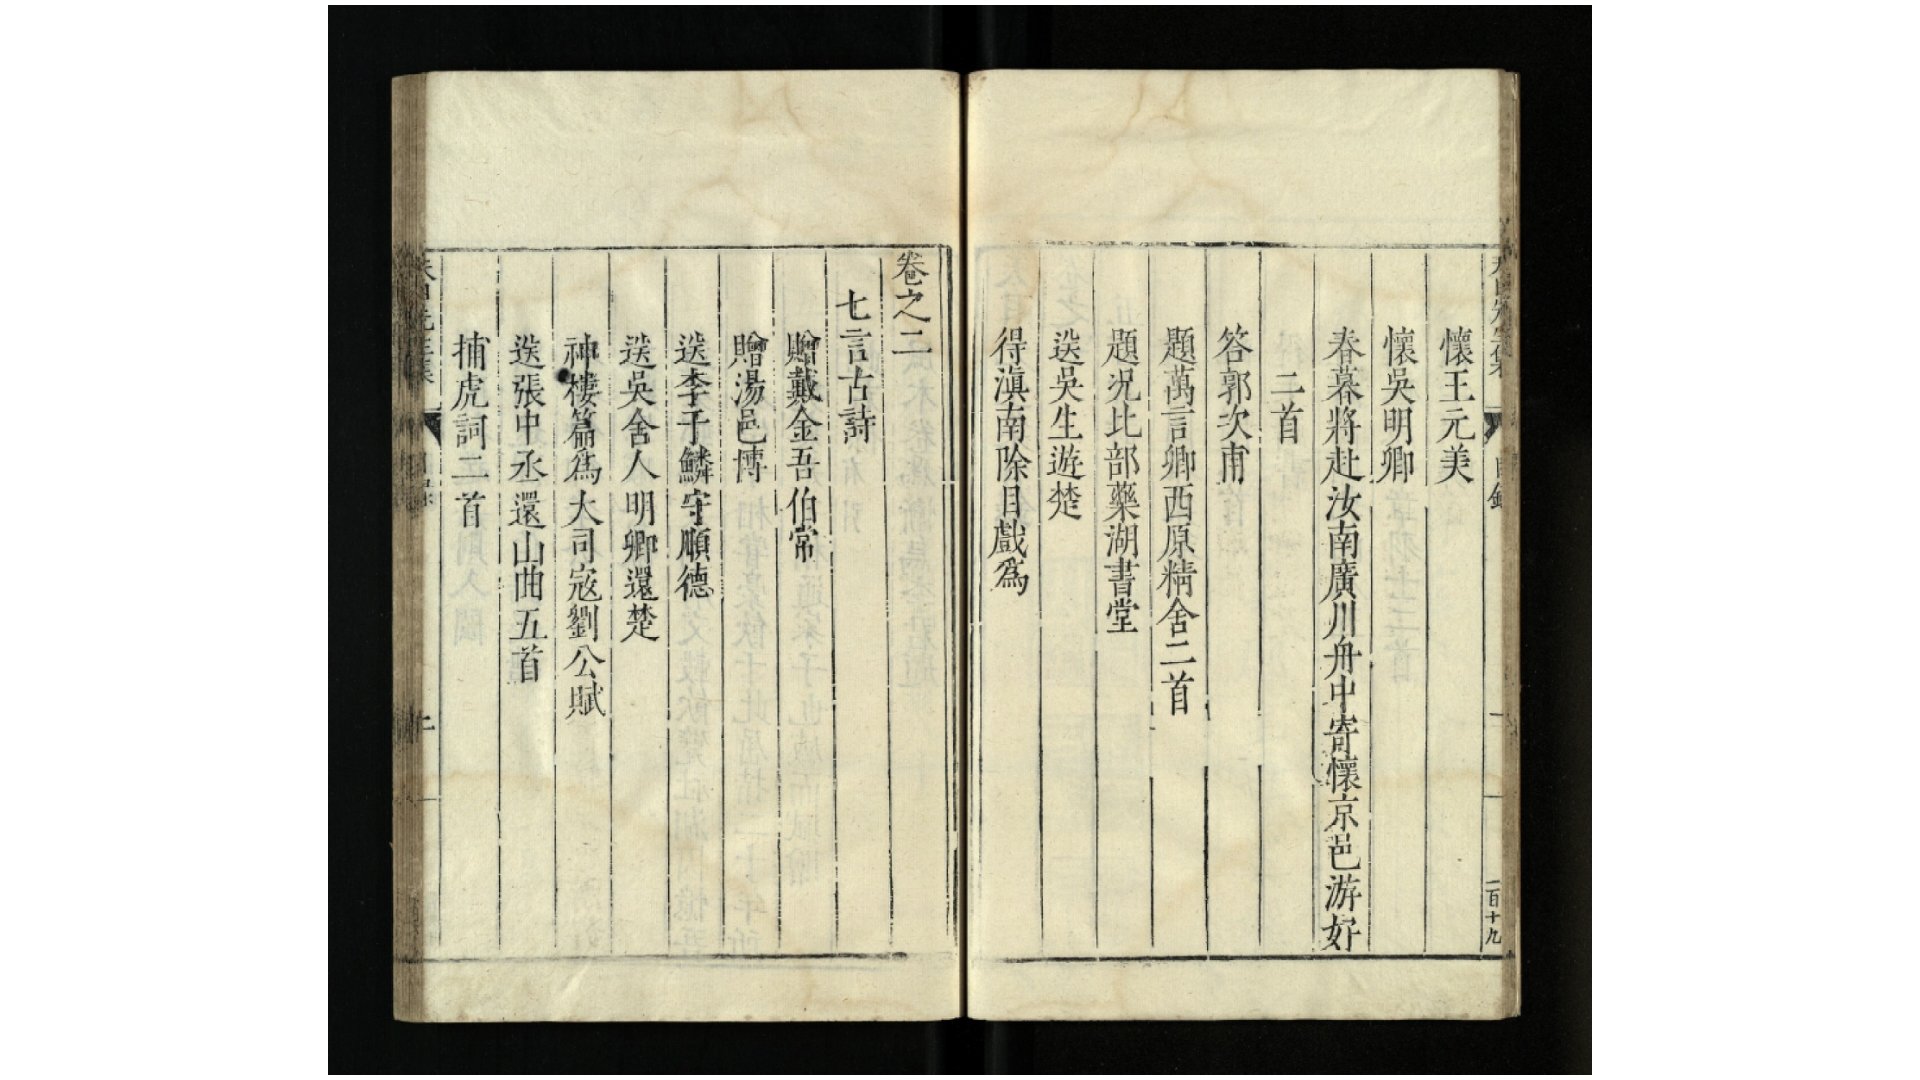 懷王元美
懷吳明卿
春暮將赴汝南廣川舟中寄懷京邑游好
二首
答郭次甫
題萬言卿西原精舍二首
題况比部藥湖書堂
送吳生遊楚
得滇南除目戲為
一百十九
卷之二
七言古詩
贈戴金吾伯常
贈湯邑博
送李于鱗守順德
送吳舍人明卿還楚
神樓篇為大司寇劉公賦
送張中丞還山曲五首
捕虎詞二首